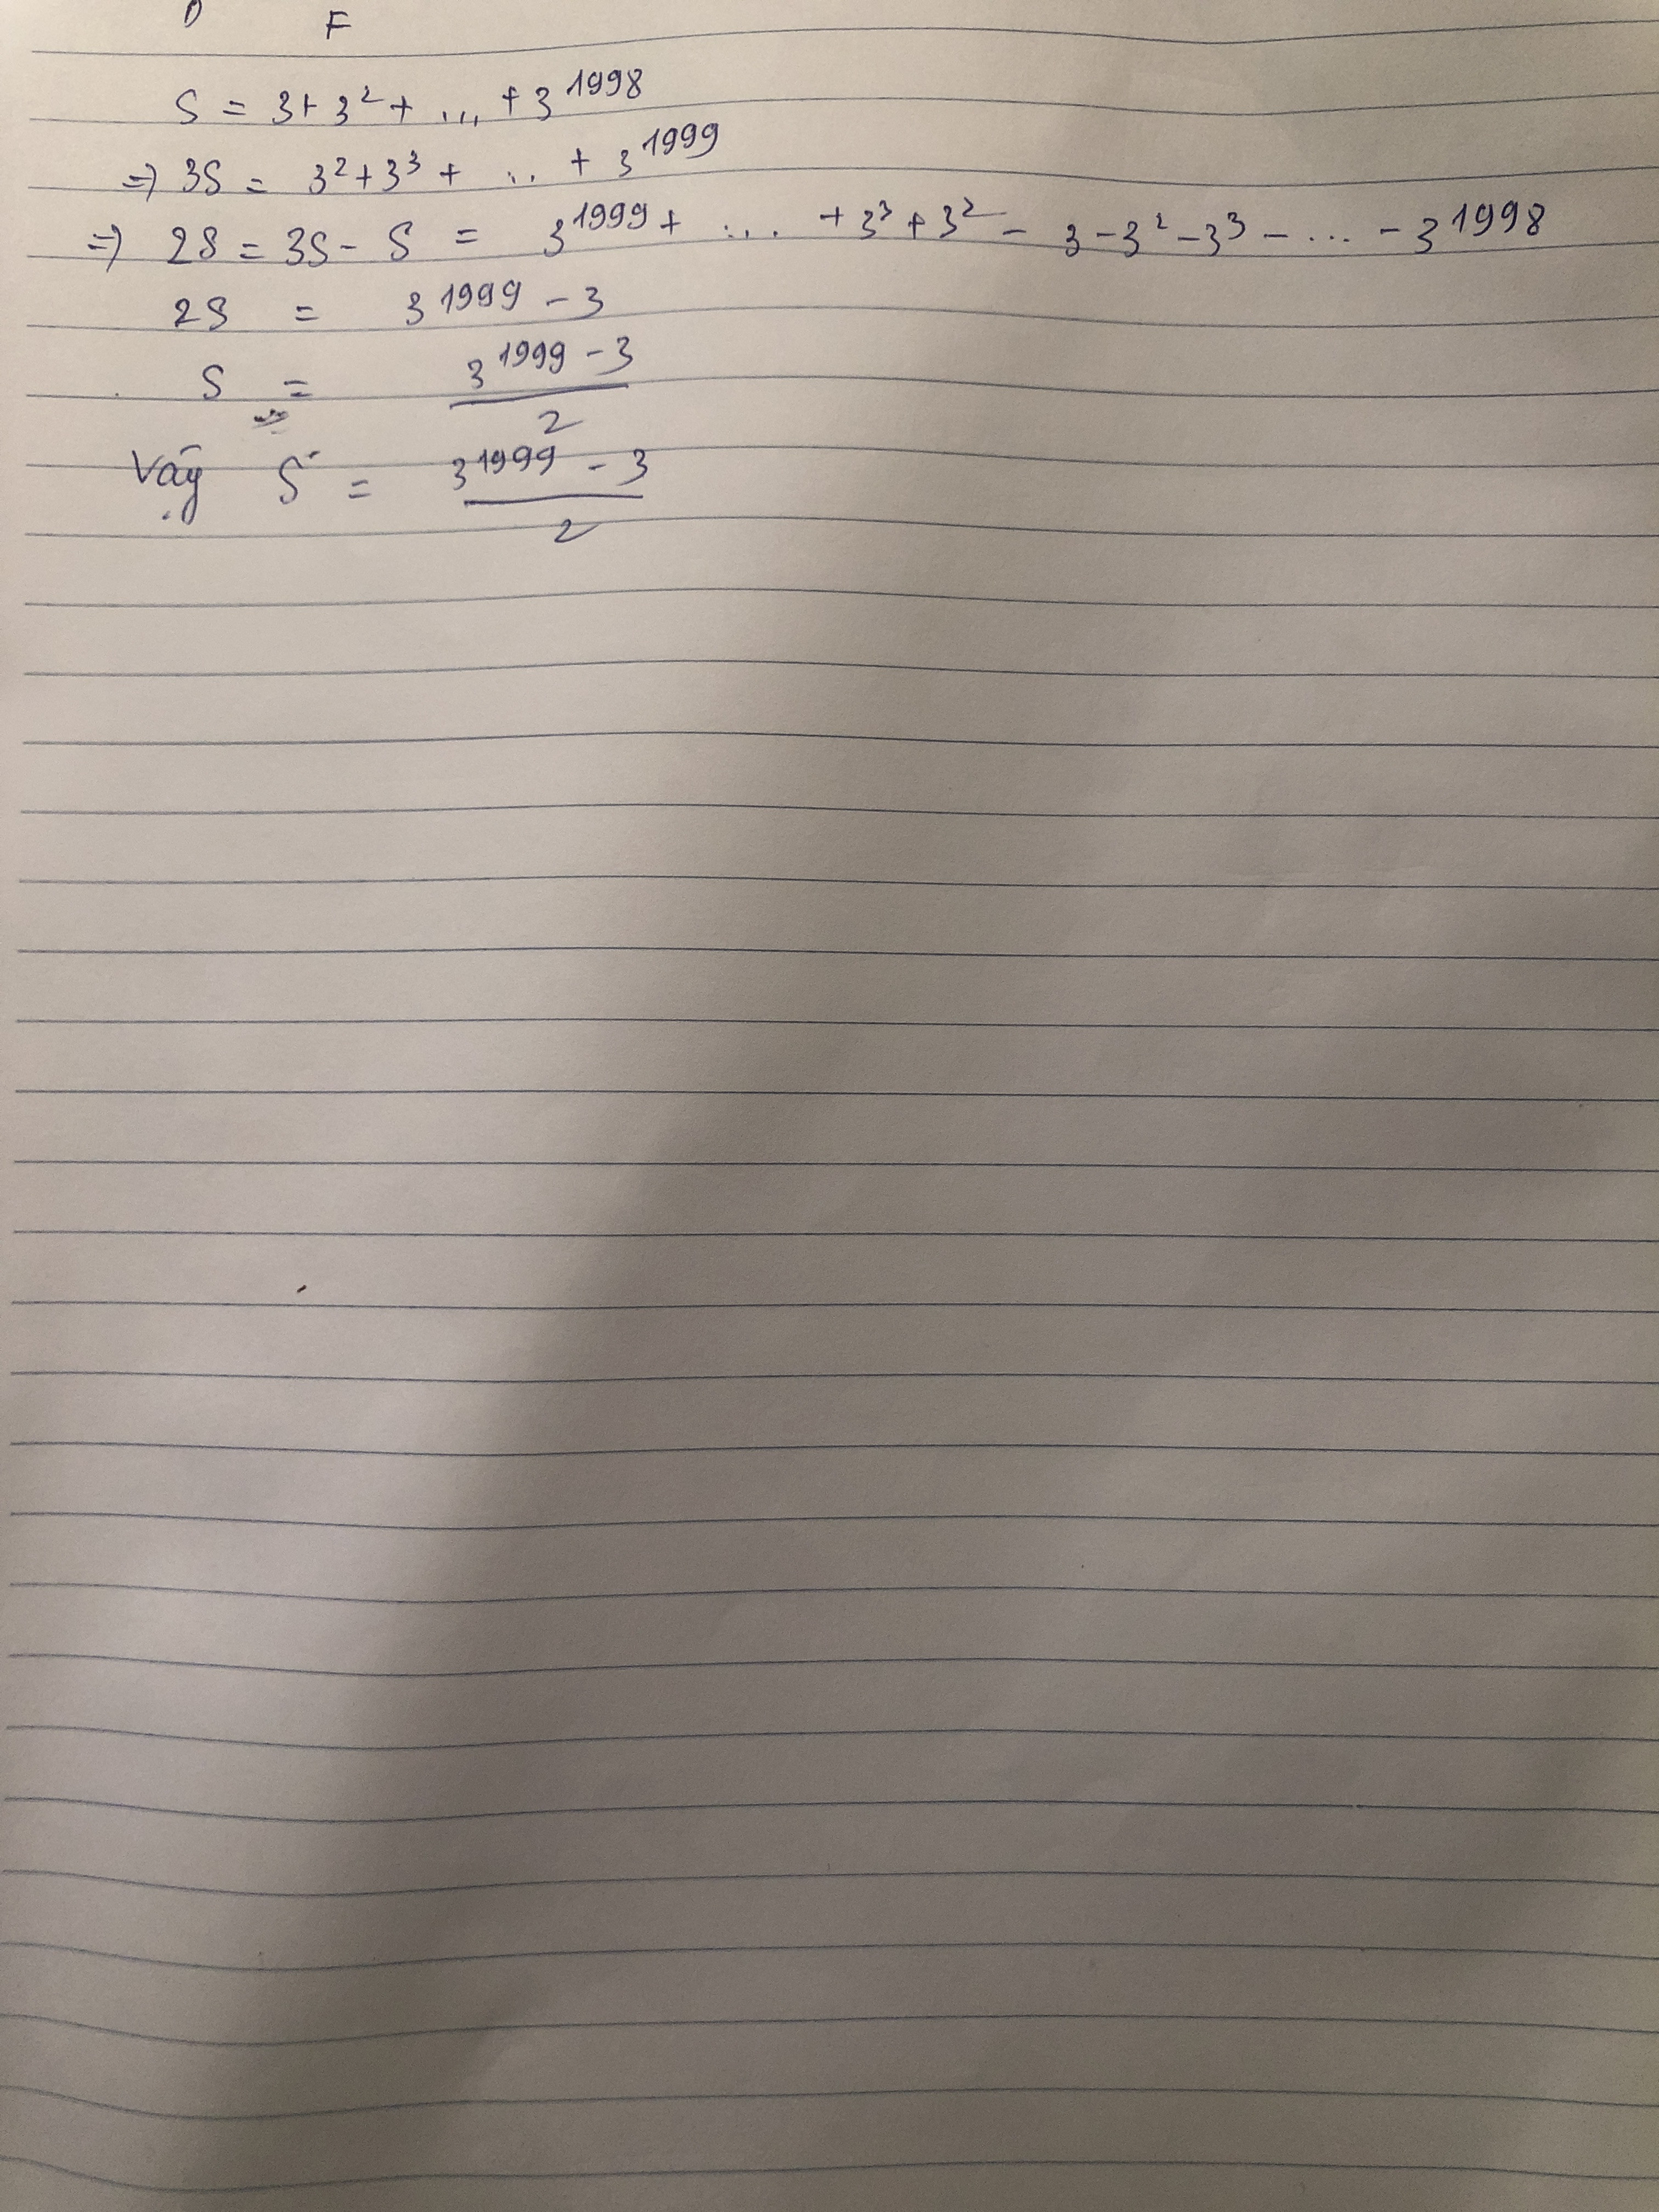 F
S = 3 + 3² + ... + 3¹⁹⁹⁸
=> 3S = 3² + 3³ + ... + 3¹⁹⁹⁹
=> 2S = 3S - S = 3¹⁹⁹⁹ + .... + 3³ + 3² - 3 - 3² - 3³ - ... - 3¹⁹⁹⁸
2S = 3¹⁹⁹⁹ - 3
S = (3¹⁹⁹⁹ - 3)/2
Vậy S = (3¹⁹⁹⁹ - 3)/2